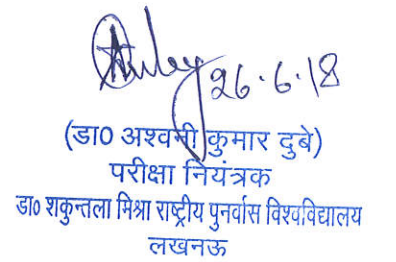 26.6.18
(डा0 अश्वनी कुमार दुबे)
परीक्षा नियंत्रक
डा० शकुन्तला मिश्रा राष्ट्रीय पुनर्वास विश्वविद्यालय
लखनऊ